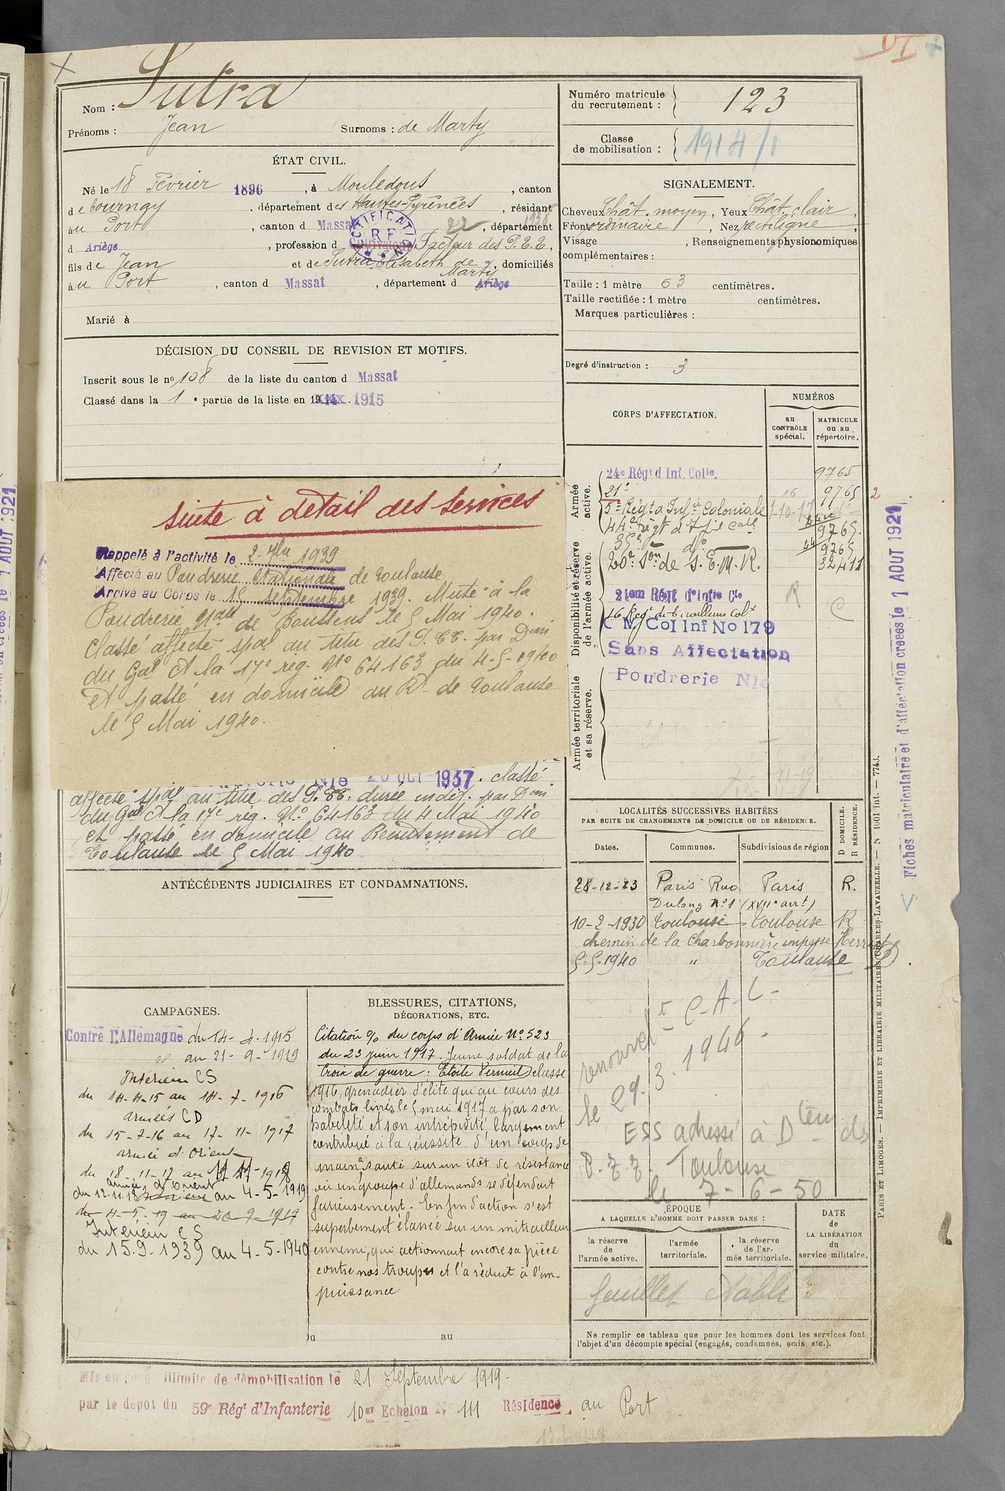 Nom : Sutra
Prénoms : Jean Surnoms : de Marty
ÉTAT CIVIL.
Né le 18 Février 1896, à Mouledous, canton
de Tournay, département des Hautes-Pyrénées, résidant
au Port, canton d Massat, département
d Ariège, profession d Facteur des P.E.E.
fils de Jean et de Sutra Elisabeth de Marti, domiciliés
au Port, canton d Massat, département d Ariège
Marié à
DÉCISION DU CONSEIL DE REVISION ET MOTIFS.
Inscrit sous le no 108 de la liste du canton d Massat
Classé dans la 1e partie de la liste en 1915
suite à détail des services
Rappelé à l'activité le 2 7bre 1939
Affecté au Poudrerie Nationale de Toulouse
Arrivé au Corps le 15 Septembre 1939. Muté à la
Poudrerie Nale de Boussens le 5 Mai 1940.
Classé affecté spal au titre des P.EE. par Don
du Gal Ct la 17e reg. No 64163 du 4-5-1940
et passé en domicile au Rt de Toulouse
le 5 Mai 1940.
Nle 20 OCT 1937. classé
affecté spal au titre des P.EE. durée indét. par Don
du Gal Ct la 17e reg. No 64163 du 4 Mai 1940
et passé en domicile au Recrutement de
Toulouse le 5 Mai 1940
ANTÉCÉDENTS JUDICIAIRES ET CONDAMNATIONS.
CAMPAGNES.
Contre l'Allemagne du 14-4-1915
au 21-9-1919
Intérieur CS
du 14-4-15 au 14-7-1916
armées CD
du 15-7-16 au 17-11-1917
armée d'Orient
du 18-11-17 au 11-11-1918
armée d'Orient
du 12-11-18 au 4-5-1919
du 4-5-19 au 20-9-1919
Intérieur CS
du 15.9-1939 au 4-5-1940
BLESSURES, CITATIONS,
DÉCORATIONS, ETC.
Citation % du corps d'Armée No 523
du 23 juin 1917. Jeune soldat de la
Croix de guerre : Etoile Vermeil classe
1916, grenadier d'élite qui au cours des
combats livrés le 5 mai 1917 a par son
habileté et son intrépidité largement
contribué à la réussite d'un coup de
main sauté sur un ilôt de résistance
où un groupe d'allemands se défendait
furieusement. En fin d'action s'est
superbement élancé sur un mitrailleur
ennemi, qui actionnait encore sa pièce
contre nos troupes et l'a réduit à l'im-
puissance
Du au
Mis en congé illimité de démobilisation le 21 Septembre 1919.
par le dépôt du 59e Régt d'Infanterie 10er Echelon No 111 Résidence au Port
Numéro matricule
du recrutement : 123
Classe
de mobilisation : 1914/1
SIGNALEMENT.
Cheveux Chât. moyen, Yeux Chât. clair,
Front ordinaire, Nez rectiligne,
Visage , Renseignements physionomiques
complémentaires :
Taille : 1 mètre 63 centimètres.
Taille rectifiée : 1 mètre centimètres.
Marques particulières :
Degré d'instruction : 3
CORPS D'AFFECTATION.
NUMÉROS
au
CONTRÔLE
spécial.
MATRICULE
ou au
répertoire.
Armée
active.
24e Régt d Inf. Colle. 9765
21e 16 9765 2
5e Régt d Infie Coloniale 1-10-17
44e Régt d'Infie Cole 9765
35e do 9765
Disponibilité et réserve
de l'armée active.
20e Son de S.E.M.R. 32411
21em Régt d'Infie Cle
16 Régt de Tirailleurs Cols
C M Col Inf No 179
Sans Affectation
Poudrerie Nle
R
C
Armée territoriale
et sa réserve.
LOCALITÉS SUCCESSIVES HABITÉES
PAR SUITE DE CHANGEMENTS DE DOMICILE OU DE RÉSIDENCE.
D DOMICILE.
R RÉSIDENCE.
Dates. Communes. Subdivisions de région
28-12-23 Paris Rue Paris R.
Dulong No 1 (XVIIe arrt)
10-2-1930 Toulouse Toulouse R
chemin de la Charbonnière impasse Herriot
5-5-1940 " Toulouse D
renvoi ct C.A.C.
le 29.3.1946.
ESS adressé à Dteur des
P.T.T. Toulouse
le 7-6-50
ÉPOQUE
A LAQUELLE L'HOMME DOIT PASSER DANS :
la réserve
de
l'armée active.
l'armée
territoriale.
la réserve
de l'ar-
mée territoriale.
DATE
de
LA LIBÉRATION
du
service militaire.
feuillet Nable
Ne remplir ce tableau que pour les hommes dont les services font
l'objet d'un décompte spécial (engagés, condamnés, omis, etc.).
PARIS ET LIMOGES. — IMPRIMERIE ET LIBRAIRIE MILITAIRES CHARLES-LAVAUZELLE. — N 1001 int. — 7743.
Fiches matriculaire et d'affectation créées le 1 AOUT 1921